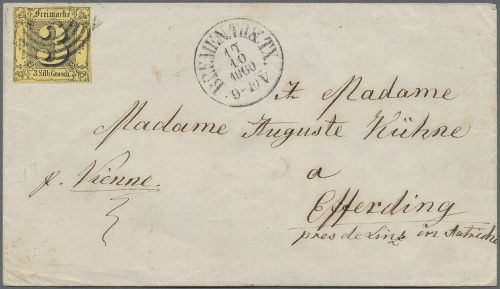 Freimarke
3
3 Silb. Grosch.
BREMEN. TH.& TX.
17
10
1860
9-10 V
A Madame
Madame Auguste Kühne
a
p. Vienne.
Efferding
pres de Linz en Autriche